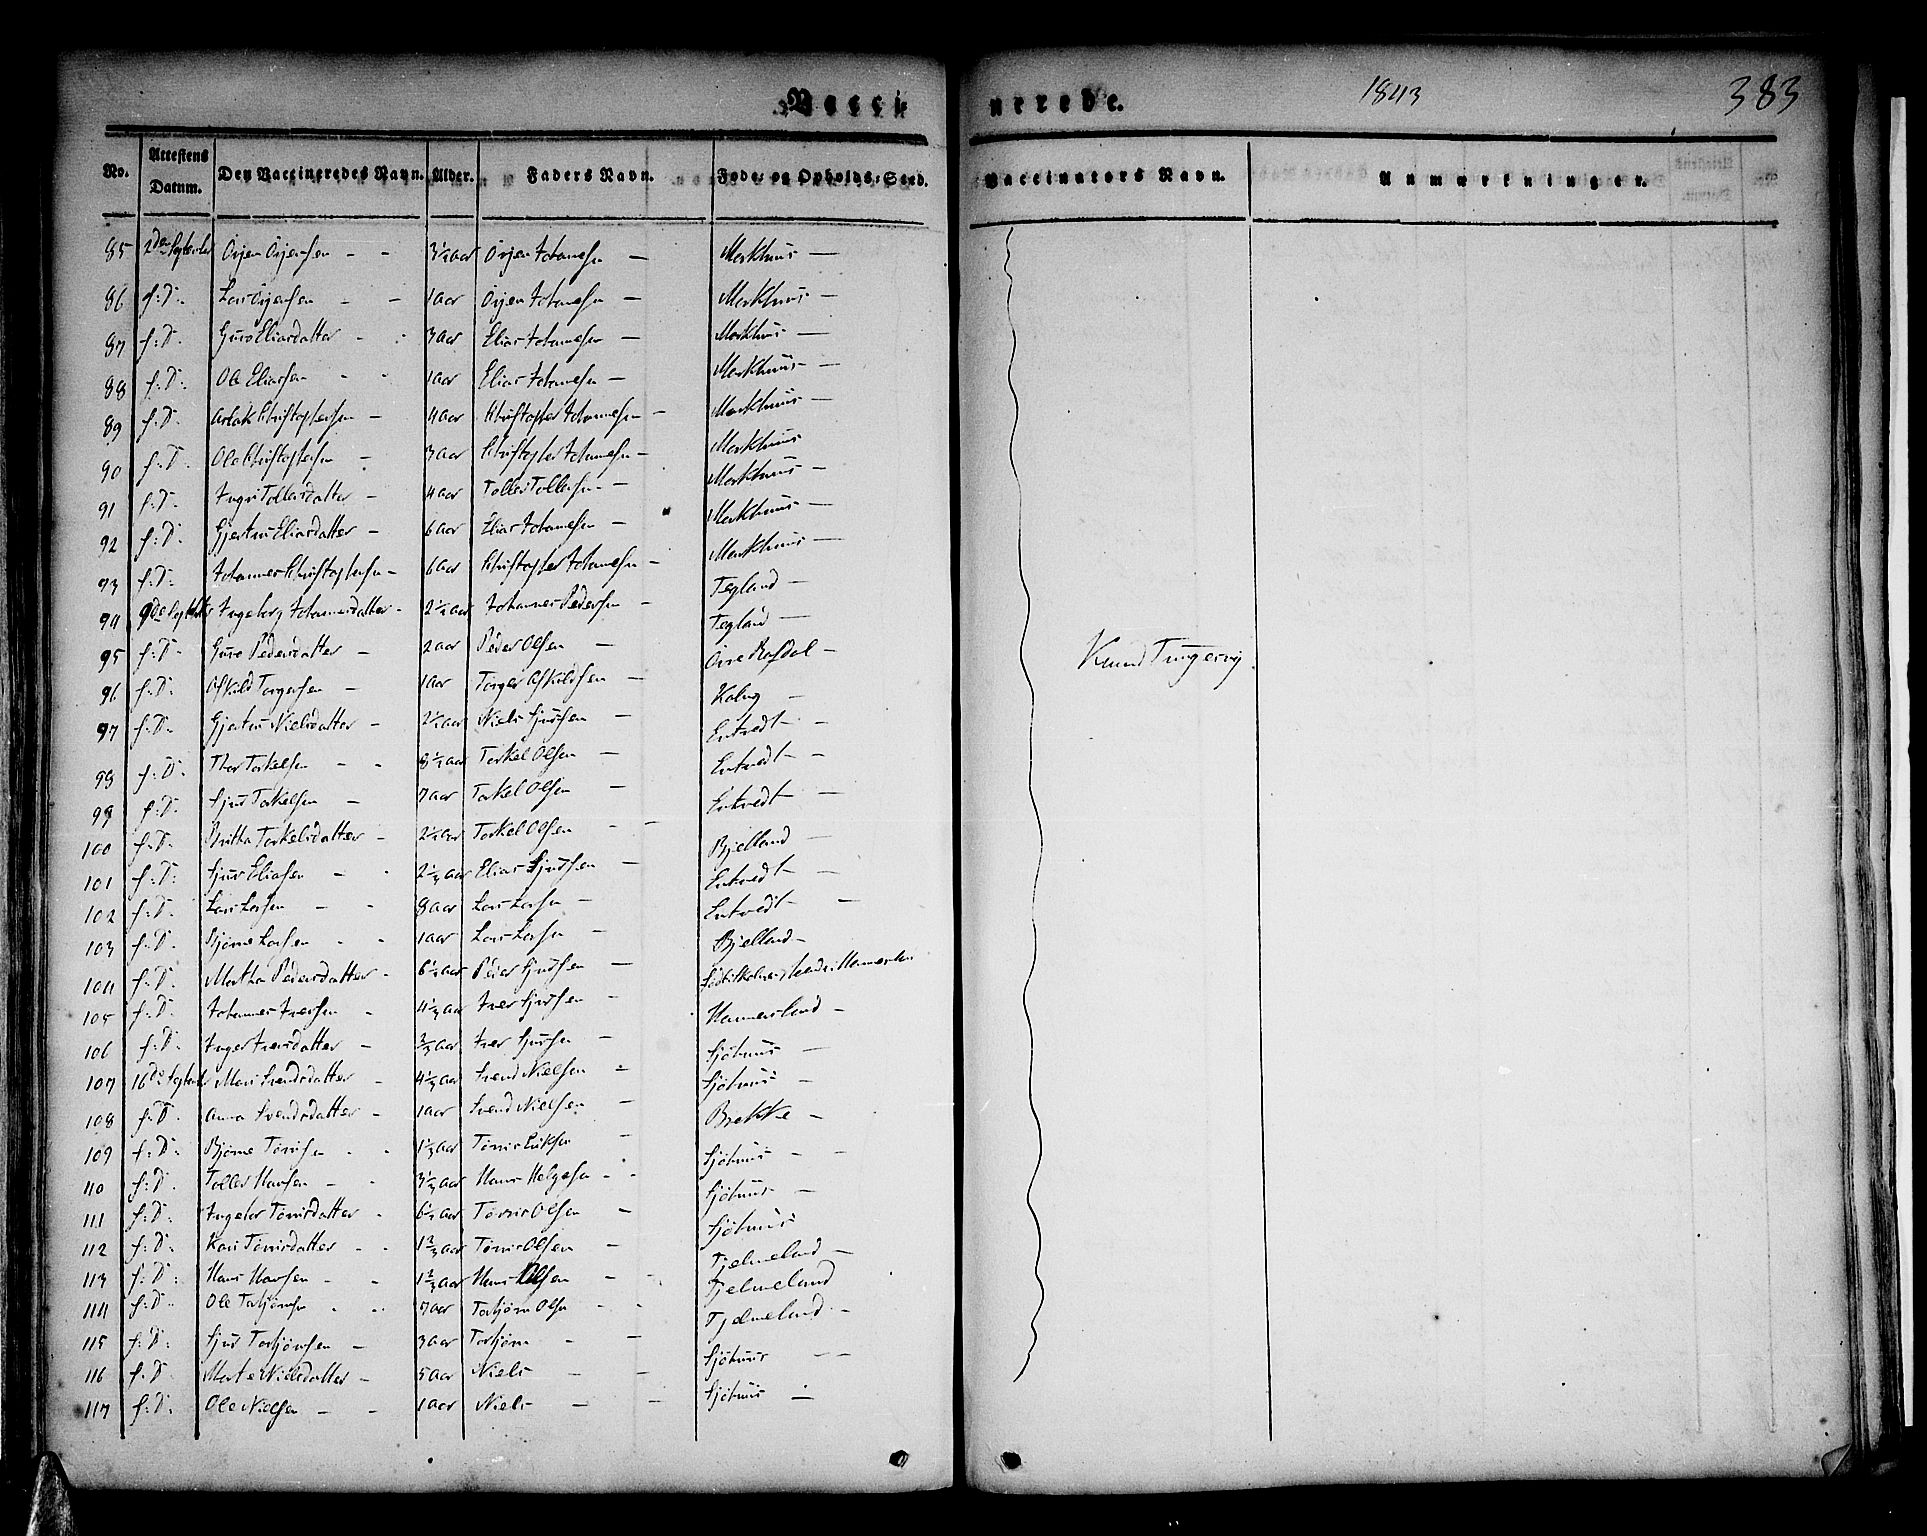 Vaccinerede. 1843 383
No. Attestens Datum. Den Vaccineredes Navn. Alder. Faders Navn. Føde- og Opholds-Sted. Vaccinators Navn. Anmærkninger.
85 2den September Ørjen Ørjensen - - 3½ aar Ørjen Johannesen - Morkhuus -
86 f: D: Lars Ørjensen - - 1 aar Ørjen Johannesen - Morkhuus -
87 f: D: Guro Eliasdatter - - 3 aar Elias Johannesen - Morkhuus -
88 f: D: Ole Eliassen - - 1 aar Elias Johannesen - Morkhuus -
89 f: D: Aslak Christophersen - 4 aar Christopher Johannesen - Morkhuus -
90 f: D: Ole Christophersen - 3 aar Christopher Johannesen - Morkhuus
91 f: D: Ingri Tollevsdatter - 4 aar Tollev Tollevsen - Morkhuus -
92 f: D: Gjertru Eliasdatter - 6 aar Elias Johannesen - Morkhuus -
93 f: D: Johannes Christophersen - 6 aar Christopher Johannesen - Morkhuus -
94 9de September Ingeborg Johannesdatter - 2½ aar Johannes Pedersen - Tegland -
95 f: D: Guro Pedersdatter - 2 aar Peder Olsen - Tegland -
96 f: D: Askild Torgersen - 1 aar Torger Askildsen - Øvre Rafdal -
97 f: D: Gjertru Nielsdatter - 2½ aar Niels Sjursen - Kalveg -
98 f: D: Thor Torkelsen - - 8½ aar Torkel Olsen - Entvedt -
99 f: D: Sjur Torkelsen - 7 aar Torkel Olsen - Entvedt -
100 f: D: Britha Torkelsdatter - 2½ aar Torkel Olsen - - Entvedt -
101 f: D: Sjur Eliasen - - 2⅓ aar Elias Sjursen - Bjelland -
102 f: D: Lars Larsen - - 8 aar Lars Larsen - Entvedt -
103 f: D: Bjørne Larsen - - 1 aar Lars Larsen - Entvedt -
104 f: D: Martha Pedersdatter - 6½ aar Peder Sjursen - Bjelland -
105 f: D: Johannes Iversen - 4⅓ aar Iver Sjursen -
106 f: D: Inger Iversdatter - ⅔ aar Iver Sjursen - Hammersland -
107 16de September Mari Svendsdatter - 4⅓ aar Svend Nielsen - Sjøhuus -
108 f: D: Anna Svendsdatter - 1 aar Svend Nielsen - Sjøhuus -
109 f: D: Bjørne Tørrisen - - 1⅓ aar Tørris Eriksen - Brekke -
110 f: D: Tollev Hansen - - 3⅓ aar Hans Helgesen - - Sjøhuus - -
111 f: D: Ingebor Tørrisdatter - 6½ aar Tørris Olsen - Sjøhuus -
112 f: D: Kari Tørrisdatter - - 1⅔ aar Tørris Olsen - Sjøhuus
113 f: D: Hans Hansen - - 1⅔ aar Hans Olsen - - Tjelmeland -
114 f: D: Ole Torbjørnsen - - 7 aar Torbjørn Olsen - - Tjelmeland
115 f: D: Sjur Torbjørnsen - 3 aar Torbjørn - - Tjelmeland -
116 f: D: Marte Nielsdatter - 5 aar Niels - - Sjøhuus - -
117 f: D: Ole Nielsen - - 1 aar Niels - - Sjøhuus -